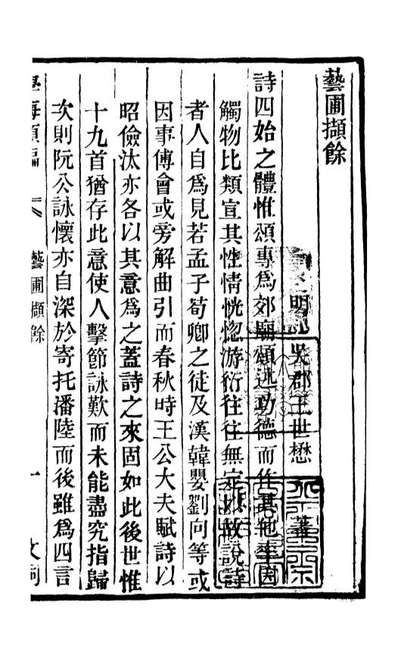 藝圃擷餘
明 吳郡王世懋
詩四始之體惟頌專為郊廟頌述功德而作其他率因
觸物比類宣其性情恍惚游衍往往無定以故說詩
者人自為見若孟子荀卿之徒及漢韓嬰劉向等或
因事傅會或旁解曲引而春秋時王公大夫賦詩以
昭儉汰亦各以其意為之蓋詩之來固如此後世惟
十九首猶存此意使人擊節詠歎而未能盡究指歸
次則阮公詠懷亦自深於寄托潘陸而後雖為四言
學海類編
藝圃擷餘
一
文詞